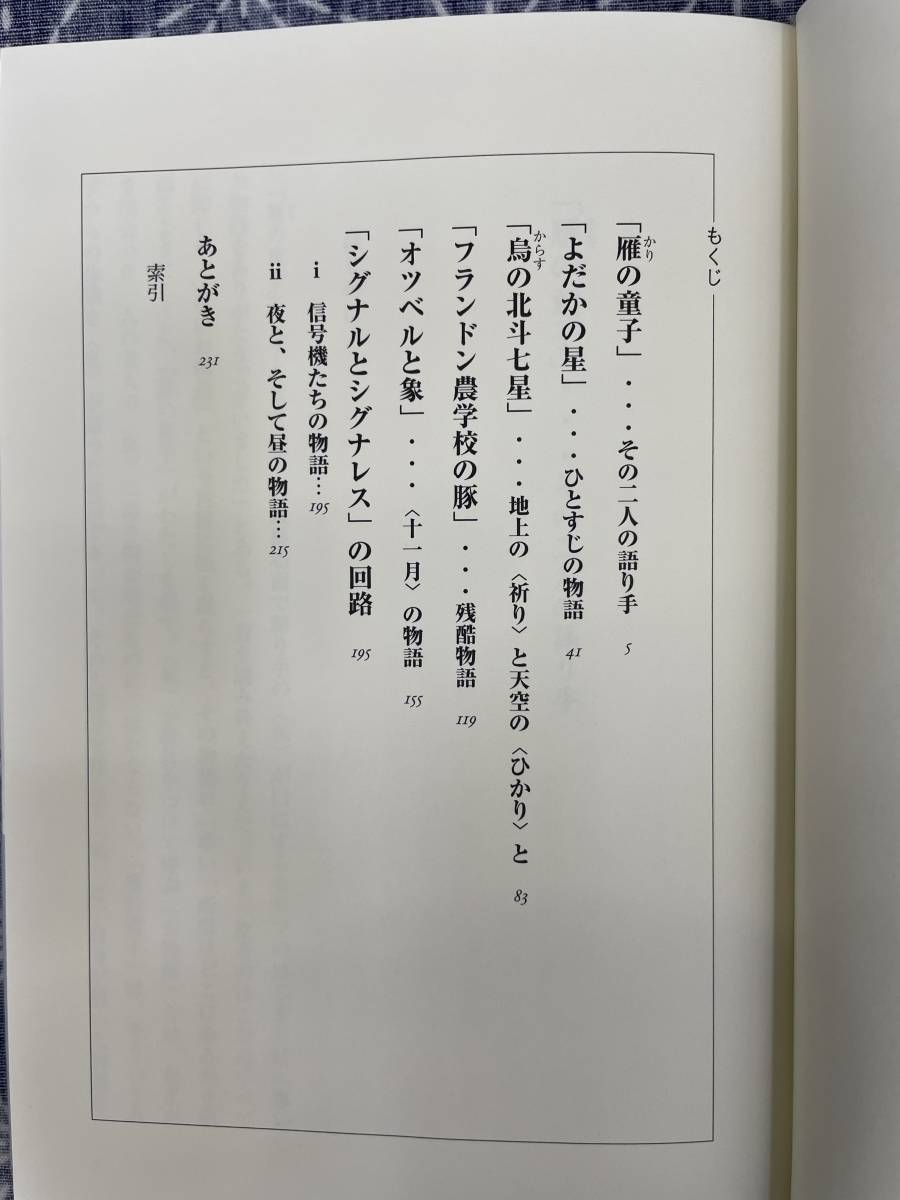 もくじ
「雁の童子」・・・その二人の語り手 5
かり
「よだかの星」・・・ひとすじの物語 41
「烏の北斗七星」・・・地上の〈祈り〉と天空の〈ひかり〉と 83
からす
「フランドン農学校の豚」・・・残酷物語 119
「オツベルと象」・・・〈十一月〉の物語 155
「シグナルとシグナレス」の回路 195
i 信号機たちの物語… 195
ii 夜と、そして昼の物語… 215
あとがき 231
索引